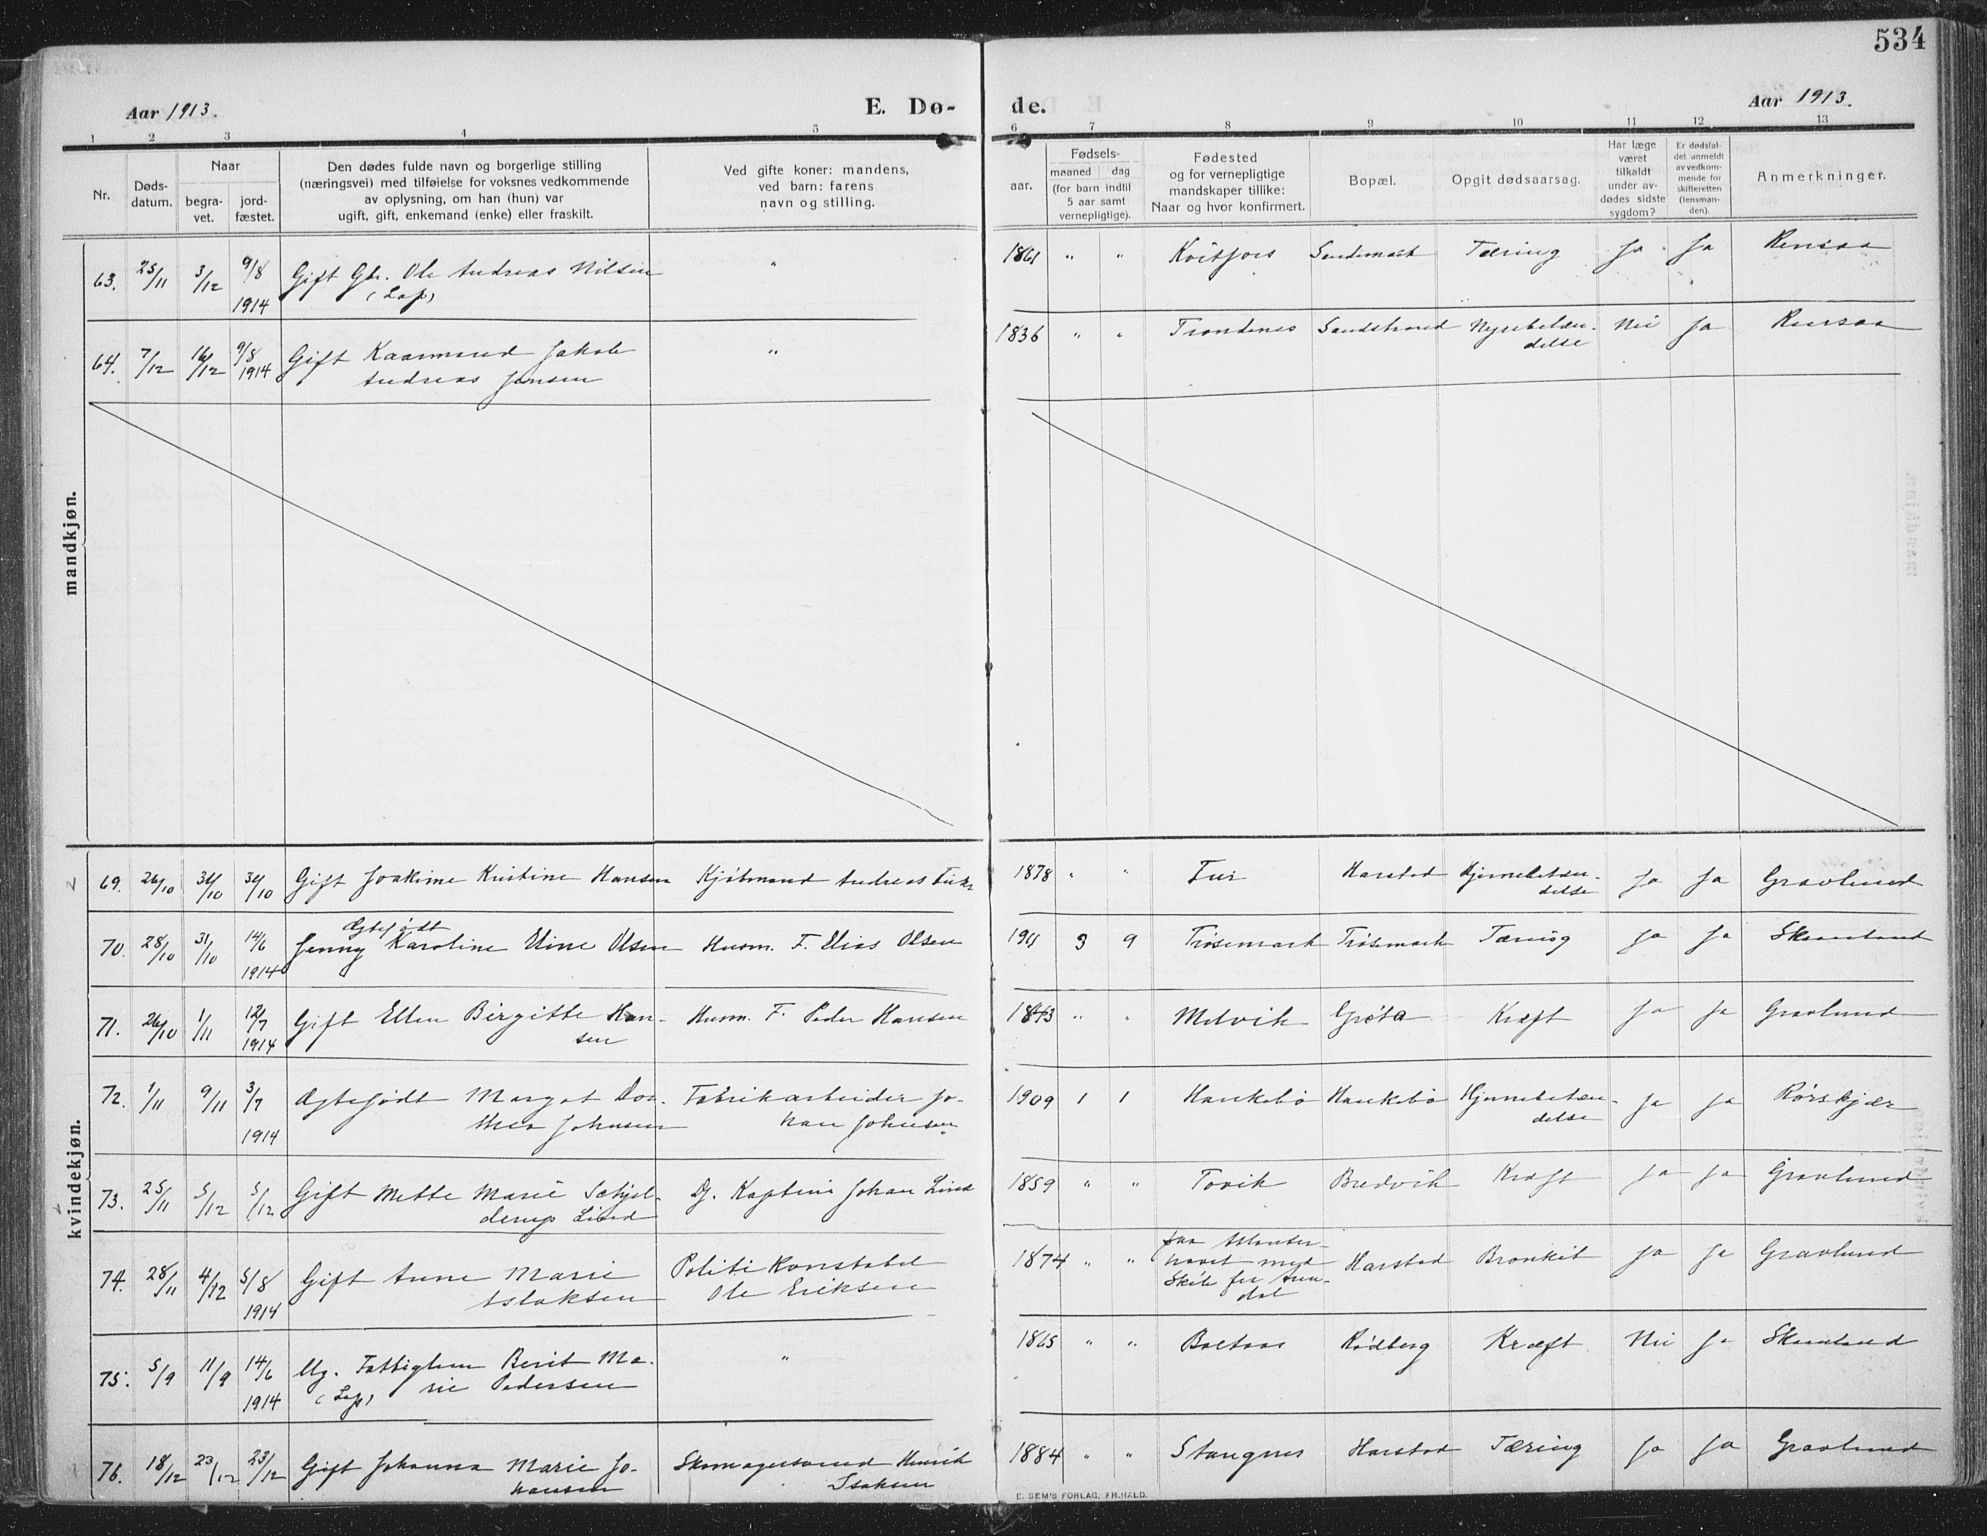 534
Aar 1913.
E. Dø-
de.
Aar 1913.
1 2 3 4 5 6 7 8 9 10 11 12 13
Nr.
Døds-
datum.
Naar
begra-
vet.
jord-
fæstet.
Den dødes fulde navn og borgerlige stilling
(næringsvei) med tilføielse for voksnes vedkommende
av oplysning, om han (hun) var
ugift, gift, enkemand (enke) eller fraskilt.
Ved gifte koner: mandens,
ved barn: farens
navn og stilling.
Fødsels-
aar.
maaned dag
(for barn indtil
5 aar samt
vernepligtige).
Fødested
og for vernepligtige
mandskaper tillike:
Naar og hvor konfirmert.
Bopæl.
Opgit dødsaarsag.
Har læge
været
tilkaldt
under av-
dødes sidste
sygdom?
Er dødsfal-
det anmeldt
av vedkom-
mende for
skifteretten
(lensman-
den).
Anmerkninger.
mandkjøn.
63. 25/11 3/12 9/8 Gift Gbr. Ole Andreas Nilsen " 1861 " " Kvitfors Sandemark Tæring Ja Ja Rensaa
1914 (Lap)
64. 7/12 16/12 9/8 Gift Kaarmand Jakob " 1836 " " Trondenes Sandstrand Nyrebetæn- Nei Ja Rensaa
1914 Andreas Jensen delse
kvindekjøn.
69. 26/10 30/10 30/10 Gift Joakime Kristine Hansen Kjøbmand Andreas 1878 " " Harstad Hjernebetæn- Ja Ja Gravlund
delse
Ægtefødt
70. 28/10 31/10 14/6 Jenny Karoline Eline Olsen Husm. F. Elias Olsen 1911 3 9 Trøsemark Trøsmark Tæring Ja Ja Skaanland
1914
71. 26/10 1/11 12/7 Gift Ellen Birgitte Han- Husm. F. Peder Hansen " " Melvik Grøta Kræft Ja Ja Gravlund
1914 sen
72. 1/11 9/11 3/7 Ægtefødt Margot Dor- Fabrikarbeider Jo- 1909 1 1 Haukebø Haukebø Hjernebetæn- Ja Ja Rørskjær
1914 thea Johnsen han Johnsen delse
73. 25/11 5/12 5/12 Gift Mette Marie Schjel- Dj. Kaptein Johan Lind 1859 " " Tovik Bredvik Kræft Ja Ja Gravlund
derup Lind
74. 28/11 4/12 5/8 Gift Anne Marie Politi Konstabel 1874 " " paa Atlanter- Harstad Bronkit Ja Ja Gravlund
1914 Aslaksen Ole Eriksen havet med
Skib fra Aren-
dal
75. 5/9 11/9 14/6 Ug. Fattiglem Berit Ma- " 1865 " " Boltaas Rødberg Kræft Nei Ja Skaanland
1914 (Lap) rie Pedersen
76. 18/12 23/12 23/12 Gift Johanna Marie Jo- Skomagersvend Henrik 1884 " " Stangnes Harstad Tæring Ja Ja Gravlund
hansen Isaksen
E. SEM'S FORLAG, FR.HALD.